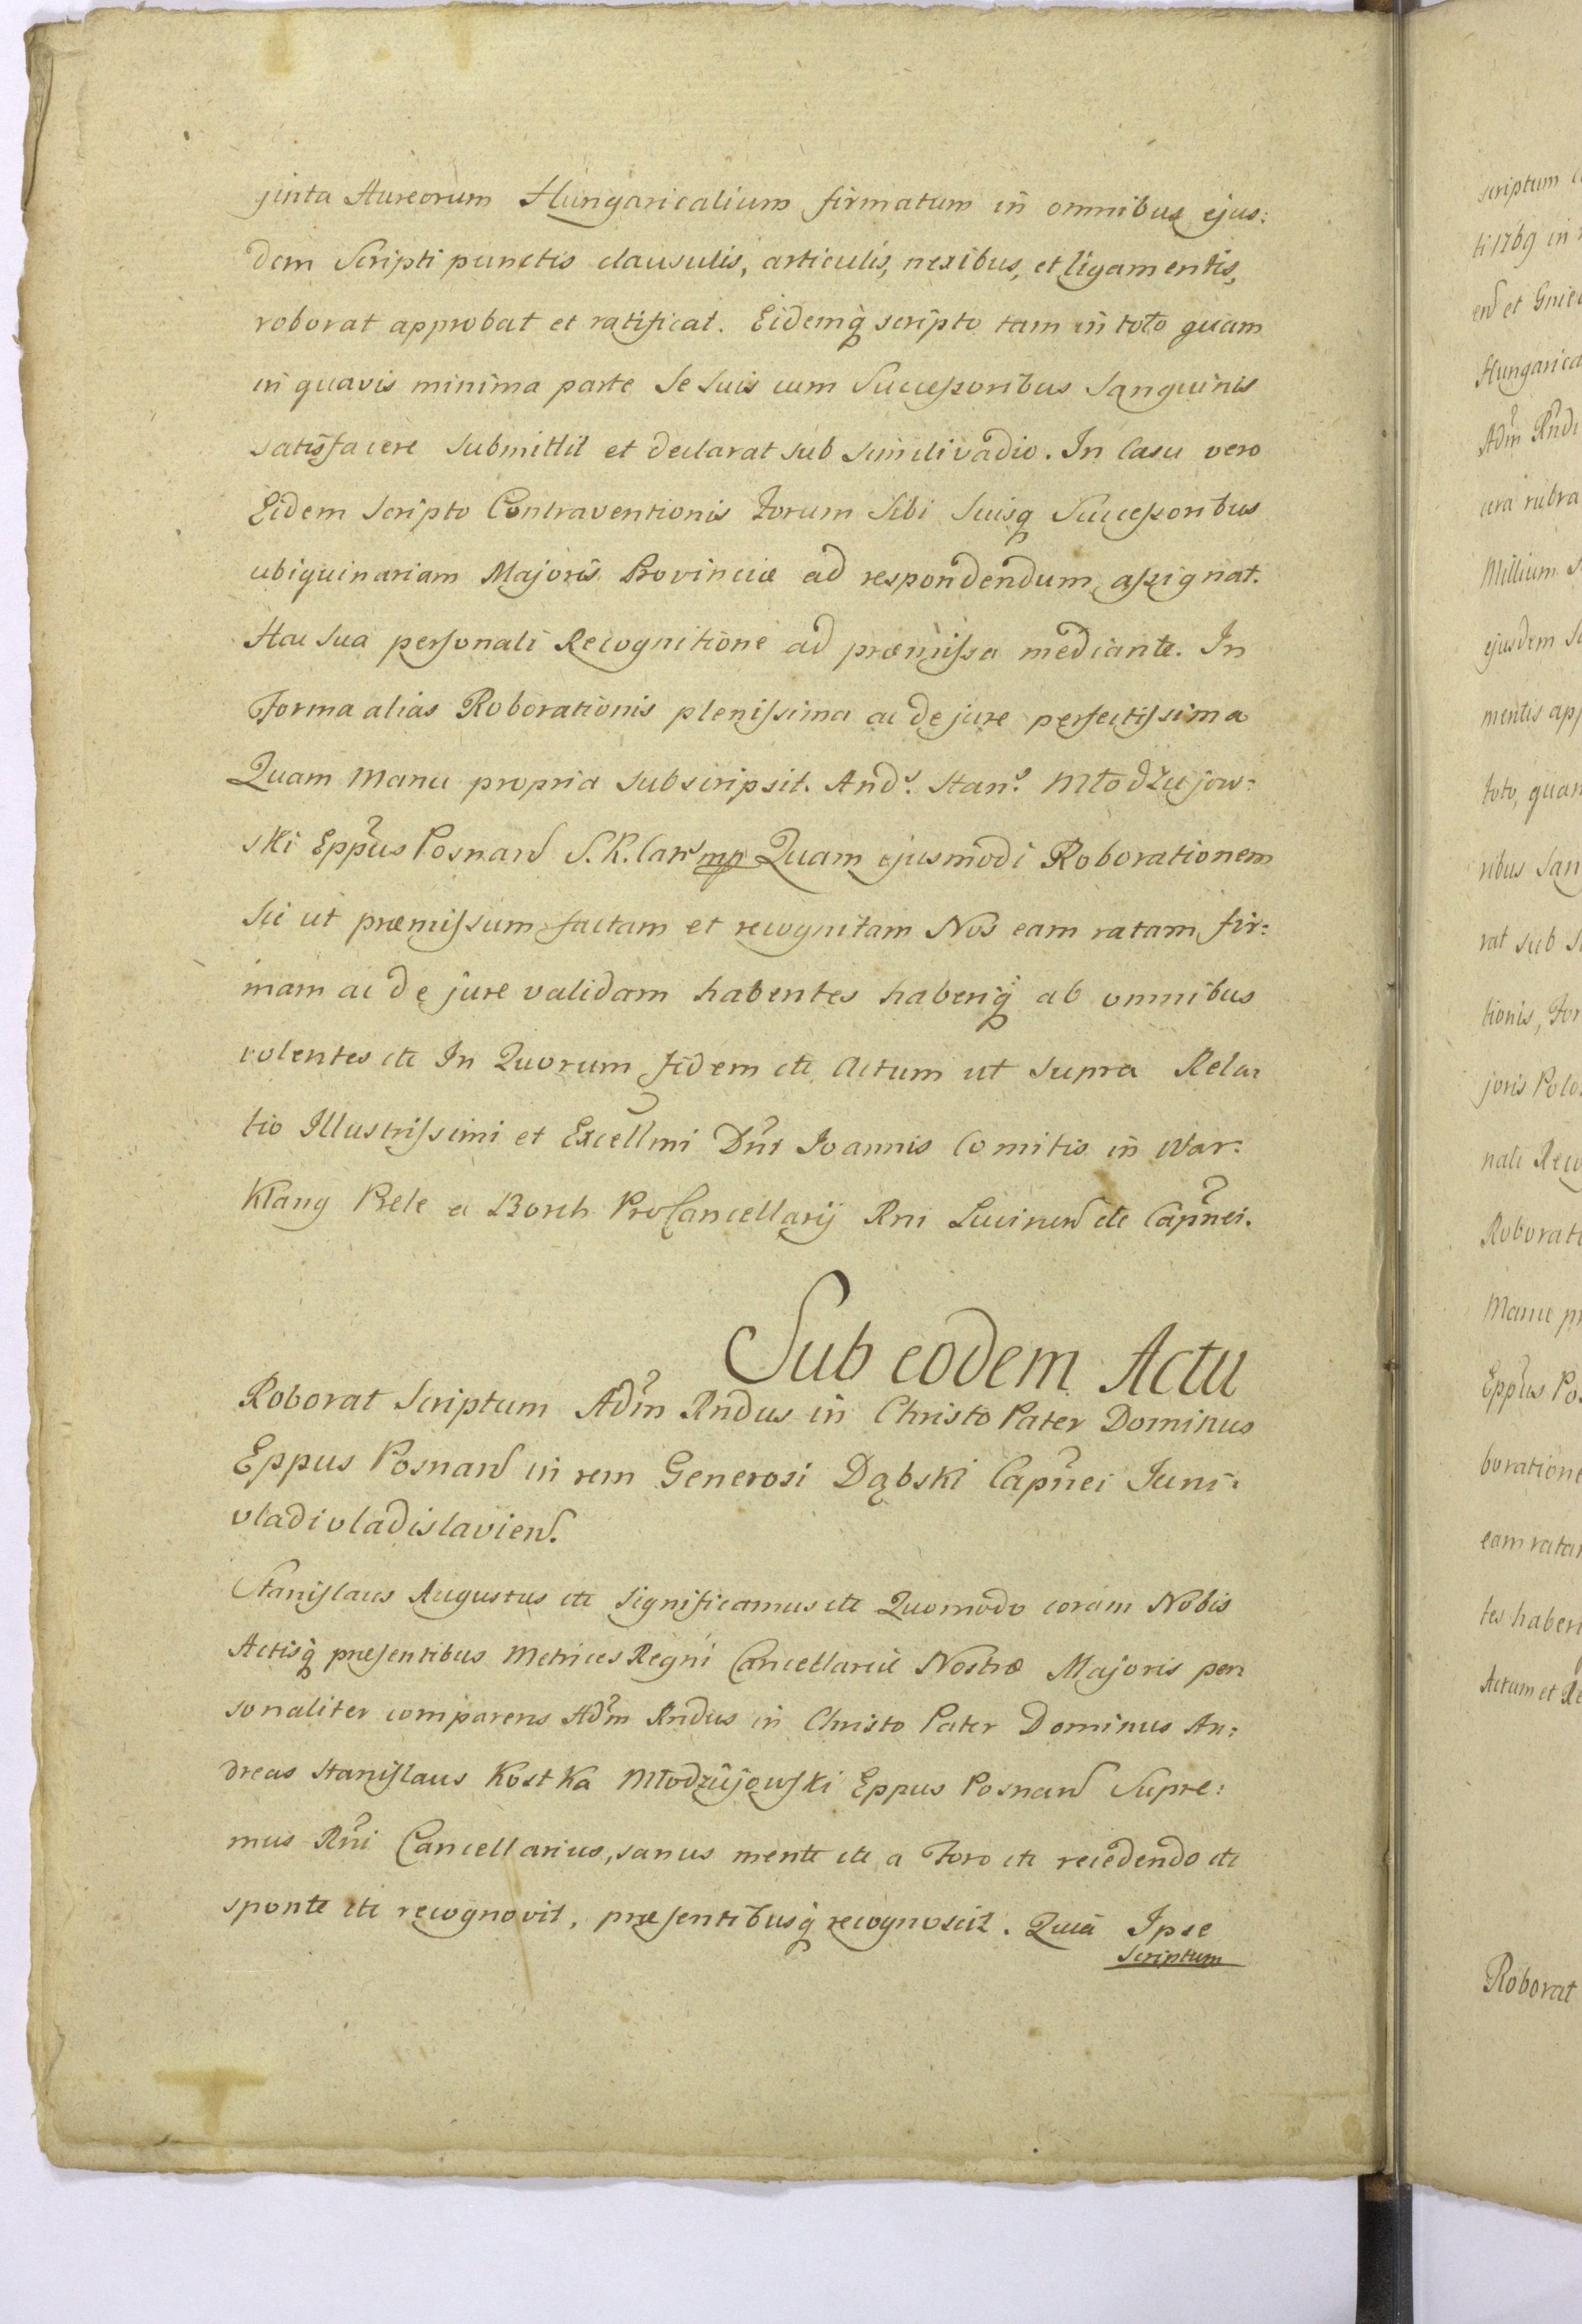 ginta Aureorum Hungaricalium firmatum in omnibus ejus:
dem Scripti punctis clausulis, articulis, nexibus, et ligamentis,
roborat approbat et ratificat. Eidemq̃ scripto tam in toto quam
in quavis minima parte Se Suis cum Successoribus Sanguinis
satisfacere Submittit et declarat sub simili vadio. In Casu vero
Eidem Scripto Contraventionis Forum Sibi Suisq̃ Successoribus
ubiquinariam Majoris Provinciæ ad respondendum assignat.
Hac Sua personali Recognitione ad præmissa mediante. In
Forma alias Roborationis plenissima ac de jure perfectissima
Quam Manu propria subscripsit. Ands. Stans. Młodziejow:
ski Eppus Posnan S.R. Canr mp Quam ejusmodi Roborationem
Sic ut præmissum factam et recognitam Nos eam ratam, fir:
mam ac de jure validam habentes haberiq̃ ab omnibus
volentes etc In Quorum fidem etc Actum ut supra Rela:
tio Illustrissimi et Excellmi Dñi Joannis Comitis in War:
klany Prele a Borch ProCancellarij Rni Lucinen etc Capnei.
Sub eodem Actu
Roborat Scriptum Adm Rndus in Christo Pater Dominus
Eppus Posnan in rem Generosi Dąbski Capnei Juni:
vladivladislavien.
Stanislaus Augustus etc Significamus etc Quomodo coram Nobis
Actisq̃ præsentibus Metrices Regni Cancellariæ Nostræ Majoris per:
sonaliter comparens Adm Rndus in Christo Pater Dominus An:
dreas Stanislaus Kostka Młodziejowski Eppus Posnan Supre:
mus Rni Cancellarius, sanus mente etc a Foro etc recedendo etc
sponte etc recognovit, præsentibusq̃ recognoscit. Quia Ipse
Scriptum
scriptum
ti 1769 in
en et Gniew
Hungarica
Adm Rndi
cera rubra
Millium
ejusdem
mentis app
toto, quam
ribus San
rat sub
tionis, For
joris Polo
nali Reco
Roborati
Manu p
Eppus Po
boratione
eam ratam
tes haberi
Actum et Re
Roborat